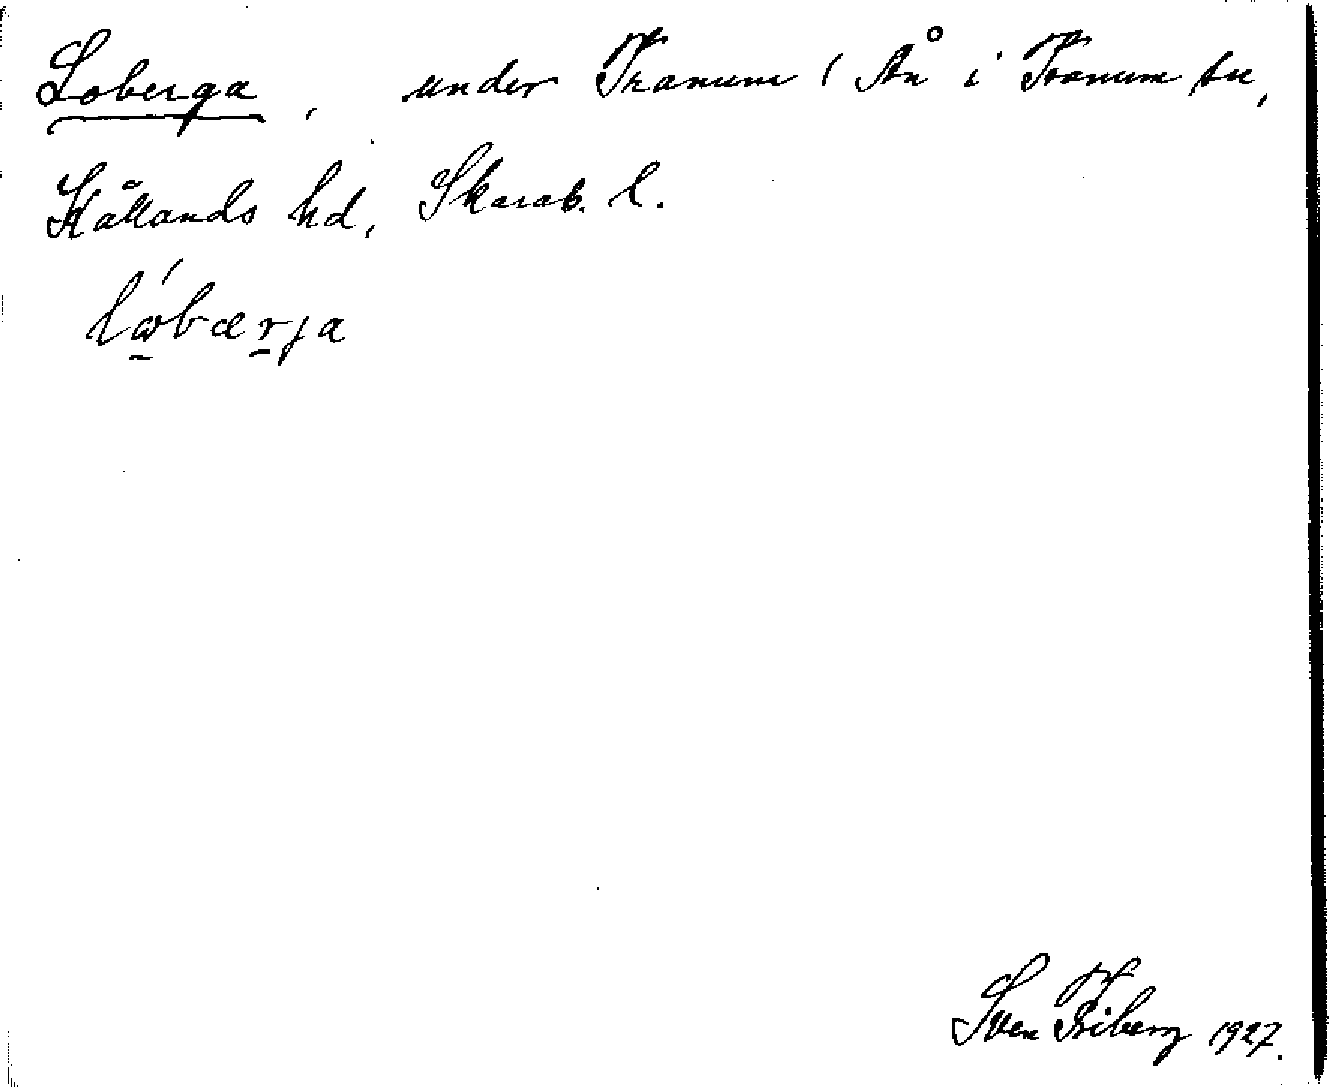 Loberga, under Tranum 1 Ån i Tranum sn,
Kållands hd, Skarab. l.
lɷ́bærja
Sven Friberg 1927.